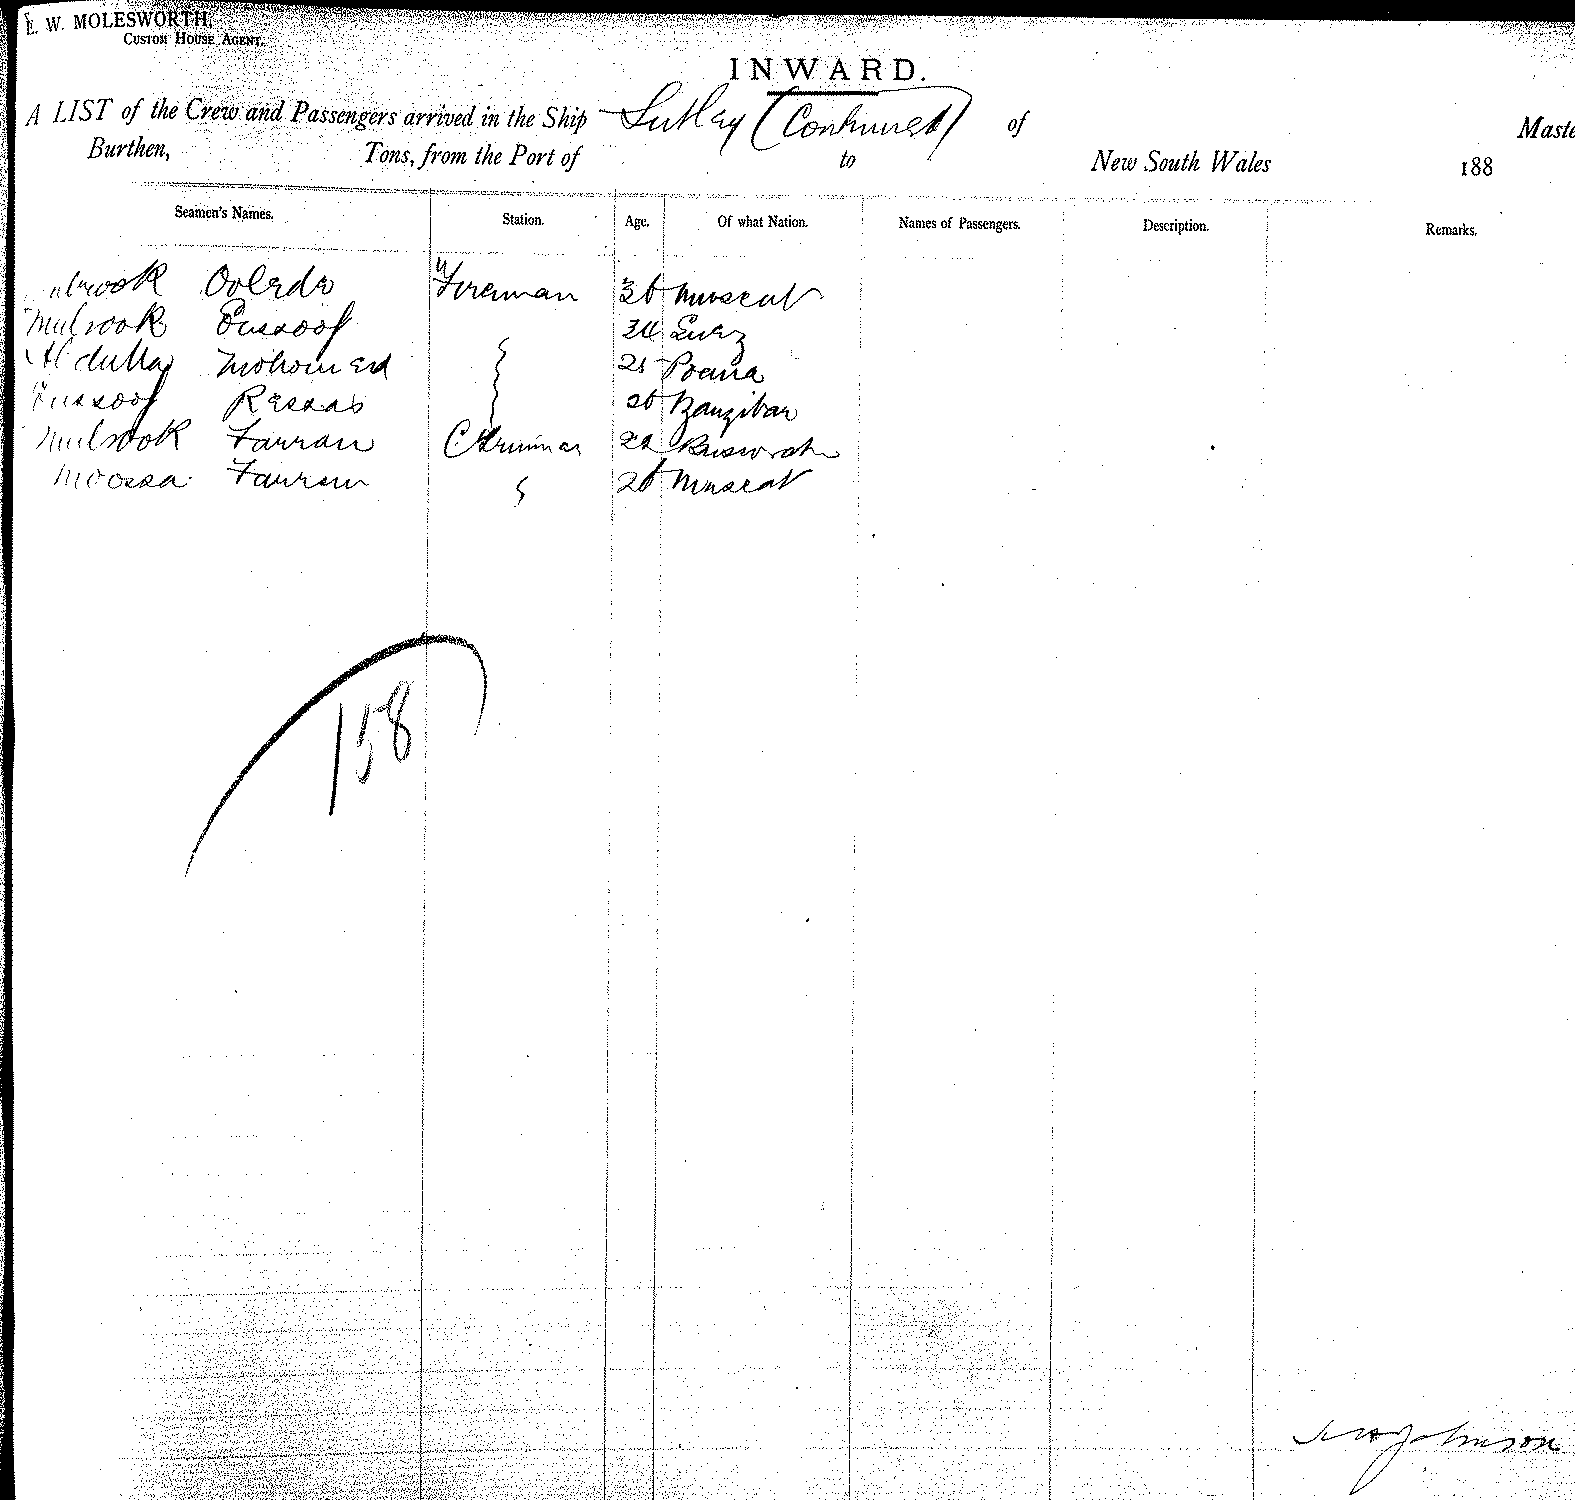 E. W. MOLESWORTH,
CUSTOM HOUSE AGENT.
INWARD.
A LIST of the Crew and Passengers arrived in the Ship Sutlej (Continued) of Maste
Burthen, Tons, from the Port of to New South Wales 188
Seamen's Names. Station. Age. Of what Nation. Names of Passengers. Description. Remarks.
Fireman Muscat
Mubrook Eussoof 34 Suez
Abdulla Mohomed 21
Eussoof 26 Zanzibar
Mubrook Farran
Moossa Farran 26 Muscat
158
Johnson